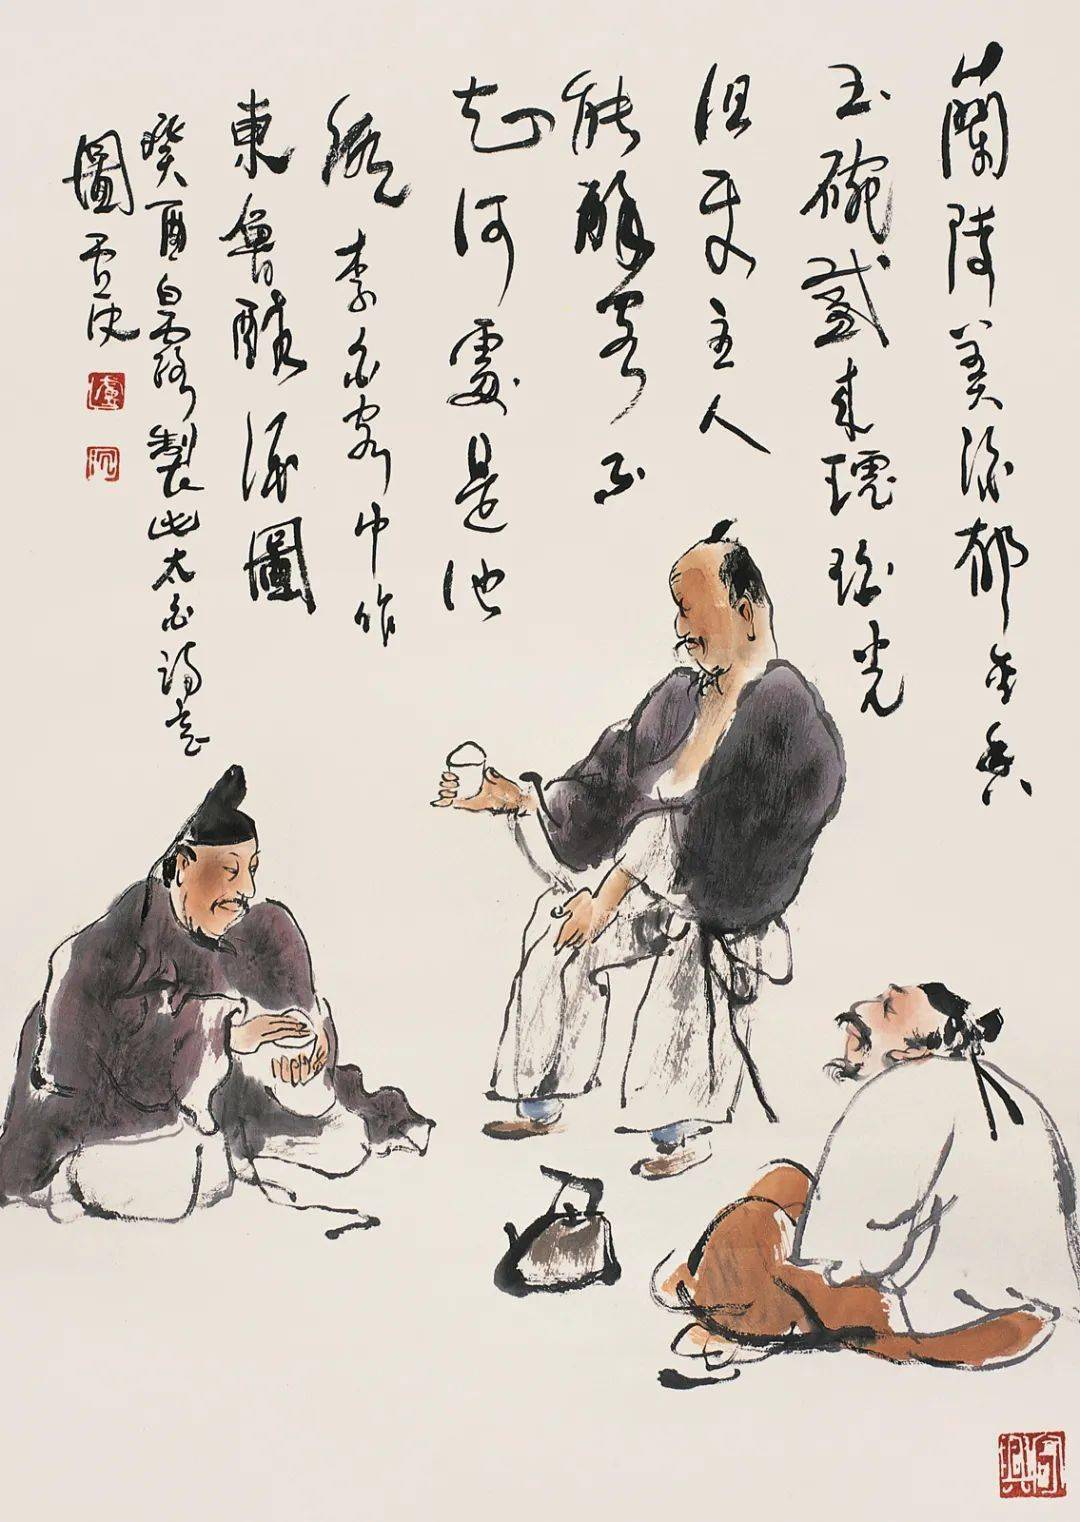 蘭陵美酒郁金香
玉碗盛来琥珀光
但使主人
能醉客不
知何處是他
鄉 李白客中作
東魯醉酒圖
癸酉白露製此太白詩意
圖 盧沉
盧
沉